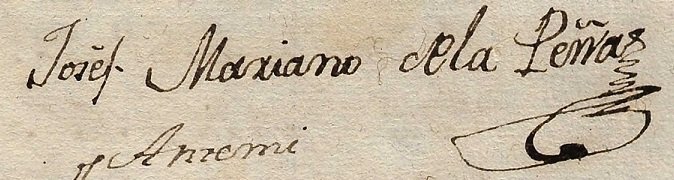 Josẽf Mariano de la Peñas
Antemi